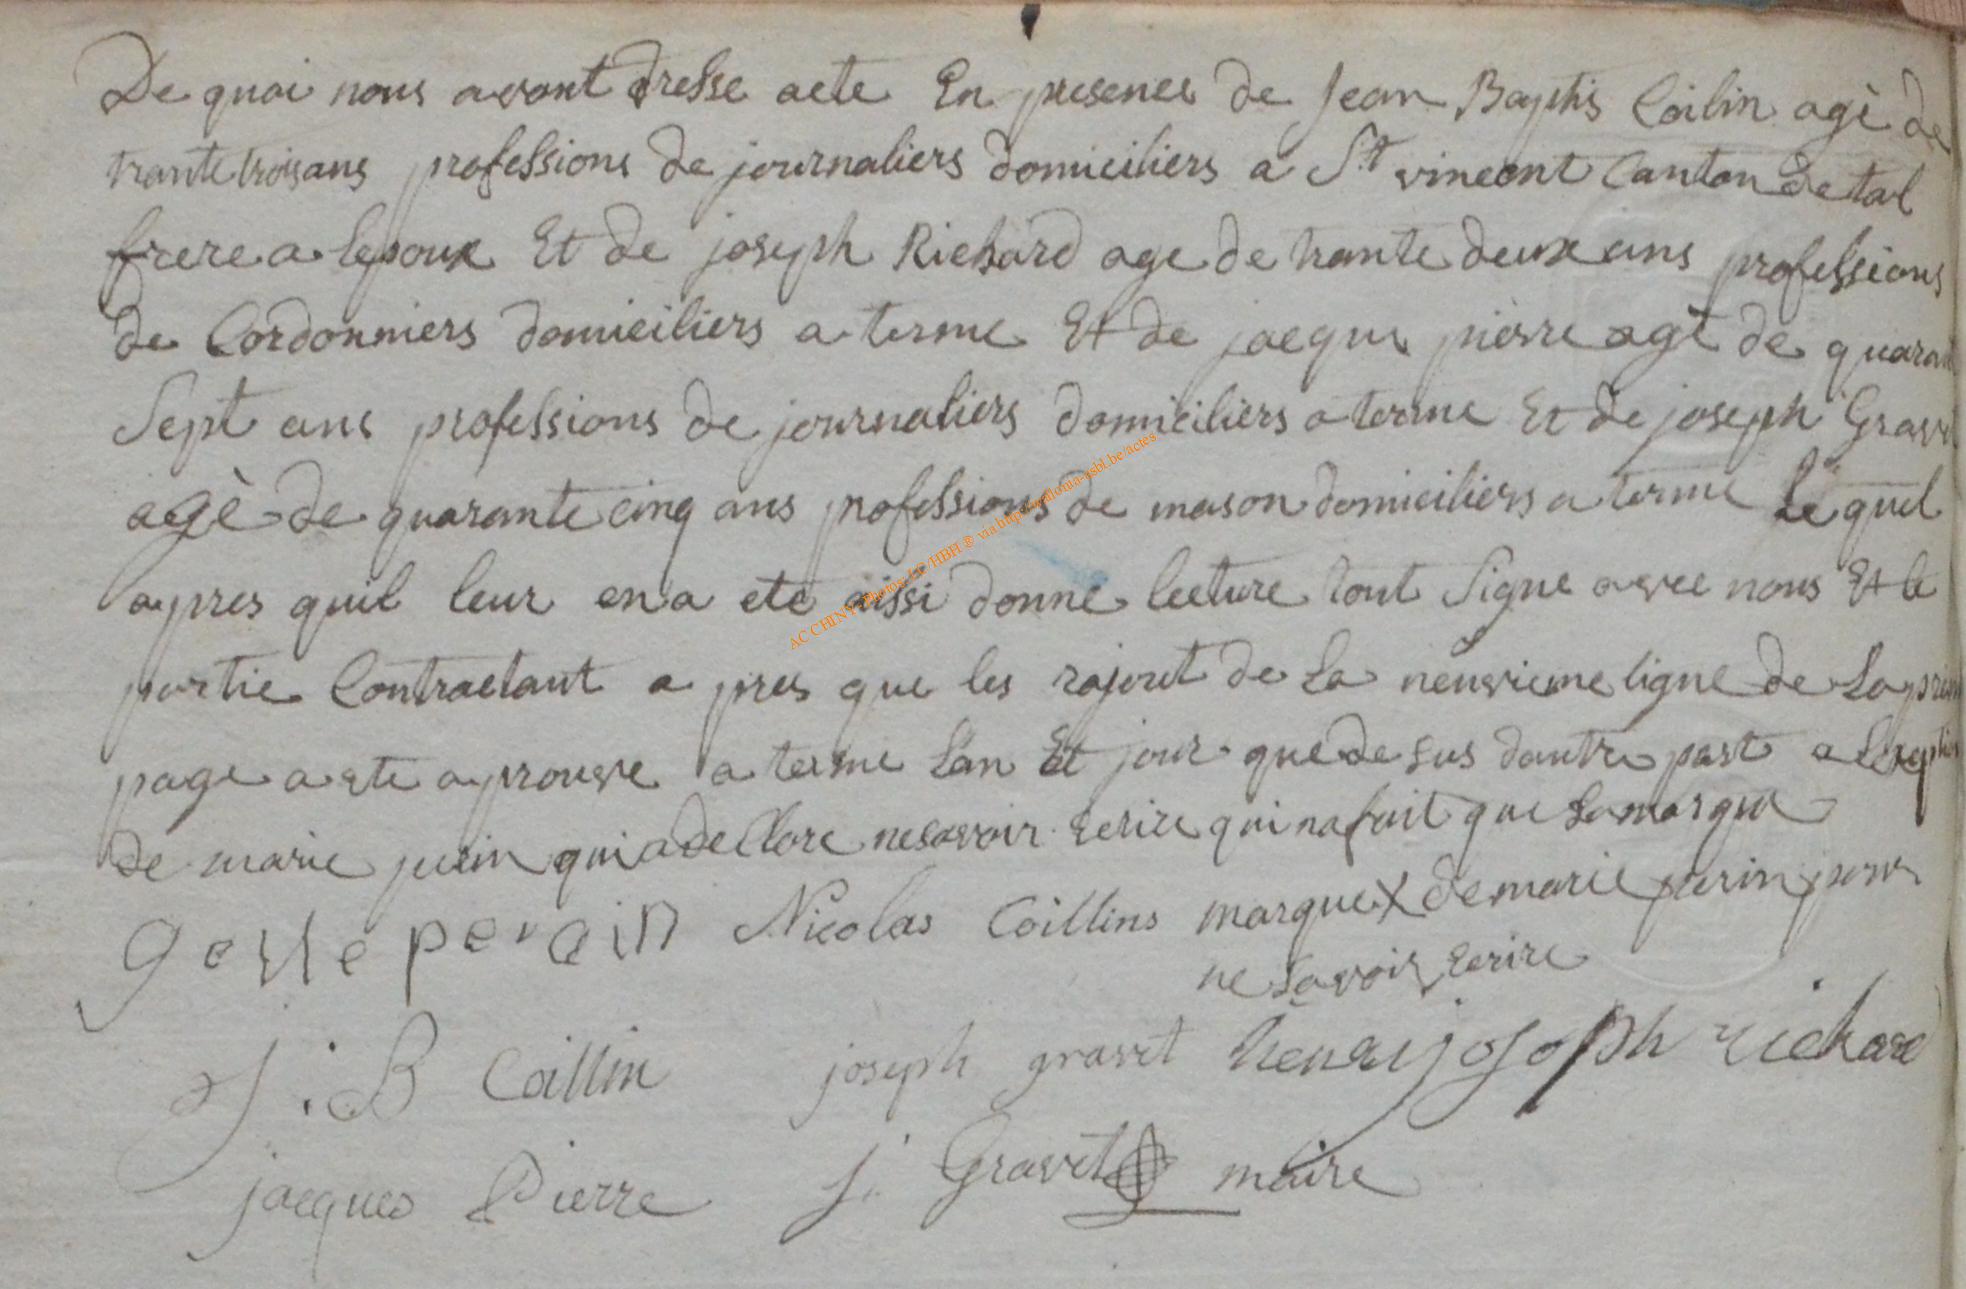 De quai nous avont dresse acte En presences de Jean Baptis Coilin agè de
trante trois ans professions de journaliers domiciliers a St vincent Canton de tal
frere a lepoux Et de joseph Richard age de trante deux ans professions
de Cordonniers domiciliers a terme Et de jacque pierre agè de quarant
Sept ans professions de journaliers domiciliers a terme Et de joseph Grave
agè de quarante cinq ans professions de mason domiciliers a terme Le quel
apres quil leur en a ete aissi donné lecture tout Signe avec nous Et le
partie Contractant a pres que les rajout de La neuvieme ligne de La prem
page a ete aprouve a terme Lan Et jour que de sus dautre part a Lexeption
de marie purin qui a de Clare ne savoir Ecrire qui na fait que La marque
perain Nicolas Coillins marque X de marie purin pour
ne Savoir Ecrire
J: B Coillin joseph gravet henri joseph richard
jacques Pierre J: Gravet maire
AC CHINY Photos: LC/HBH ® via http://wallonia-asbl.be/actes